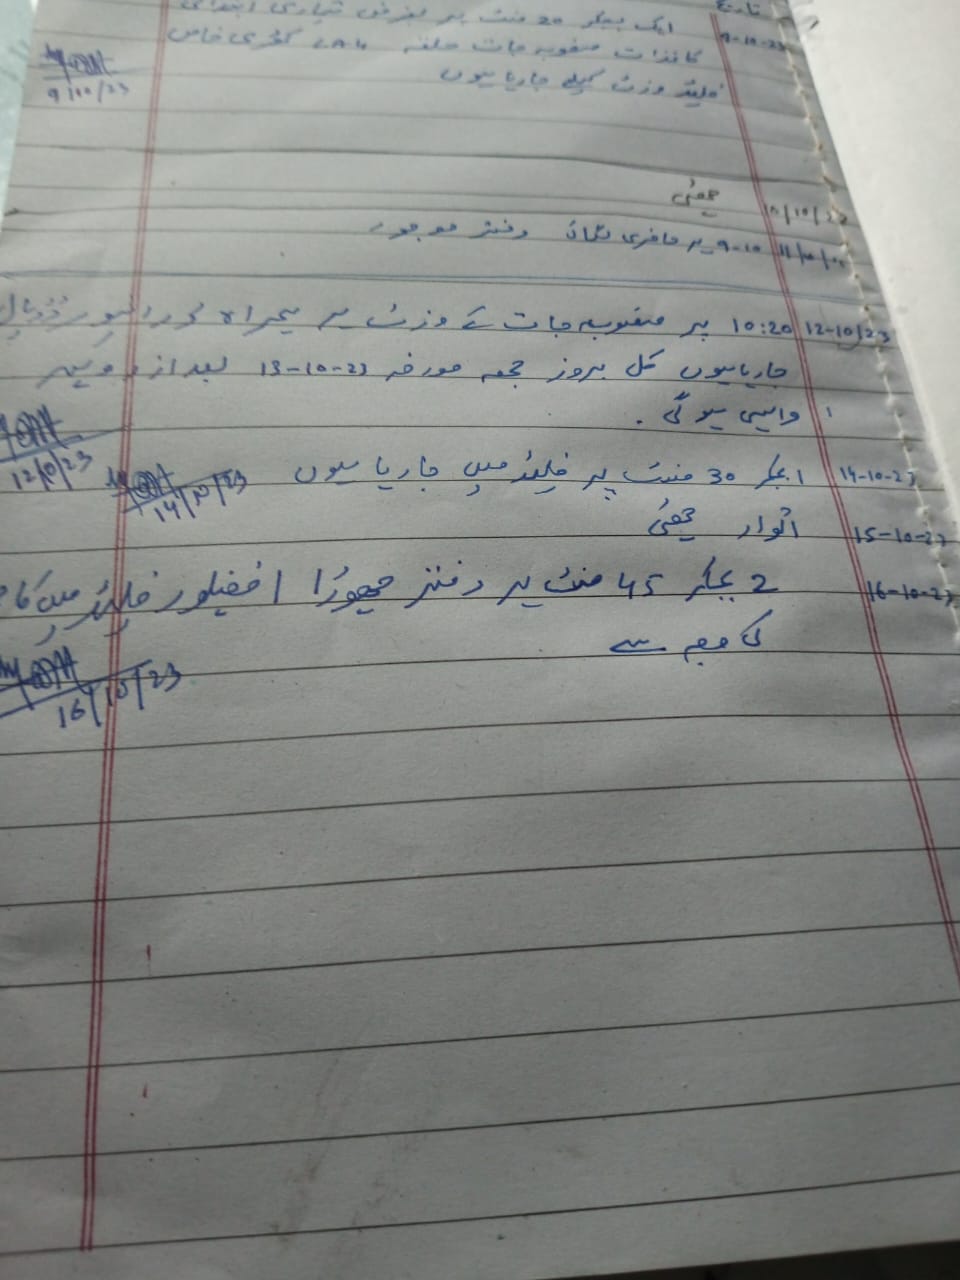 تاریخ
9-10-23 ایک بجکر 20 منٹ پر بغرض تیاری ابتدائی
کاغذات منصوبہ جات حلقہ LA4 کھڑی خاص
فیلڈ وزٹ کیلے جارہا ہوں
9/10/23
10/10/23 چھٹی
9-10 پر حاضری لگائ دفتر موجود
12-10/23 10:20 پر منصوبہ جات کے وزٹ پر ہمراہ
جارہا ہوں کل بروز جمعہ مورخہ 13-10-23 بعد از دوپہر
واپسی ہو گی .
12/10/23
14-10-23 1 بجکر 30 منٹ پر فیلڈ میں جا رہا ہوں
14/10/23
15-10-23 اتوار چھٹی
16-10-23 2 بجکر 45 منٹ پر دفتر چھوڑا فیلڈ میں کام
کی وجہ سے
16/10/23